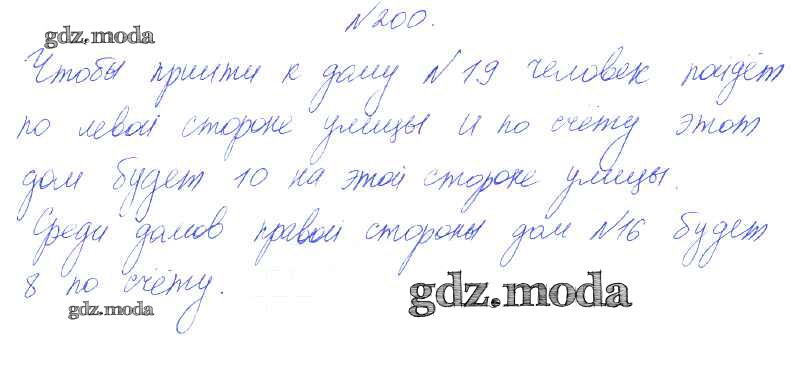 №200.
gdz.moda
Чтобы прийти к дому №19 человек пойдёт
по левой стороне улицы и по счёту этот
дом будет 10 на этой стороне улицы.
Среди домов правой стороны дом №16 будет
8 по счёту.
gdz.moda
gdz.moda